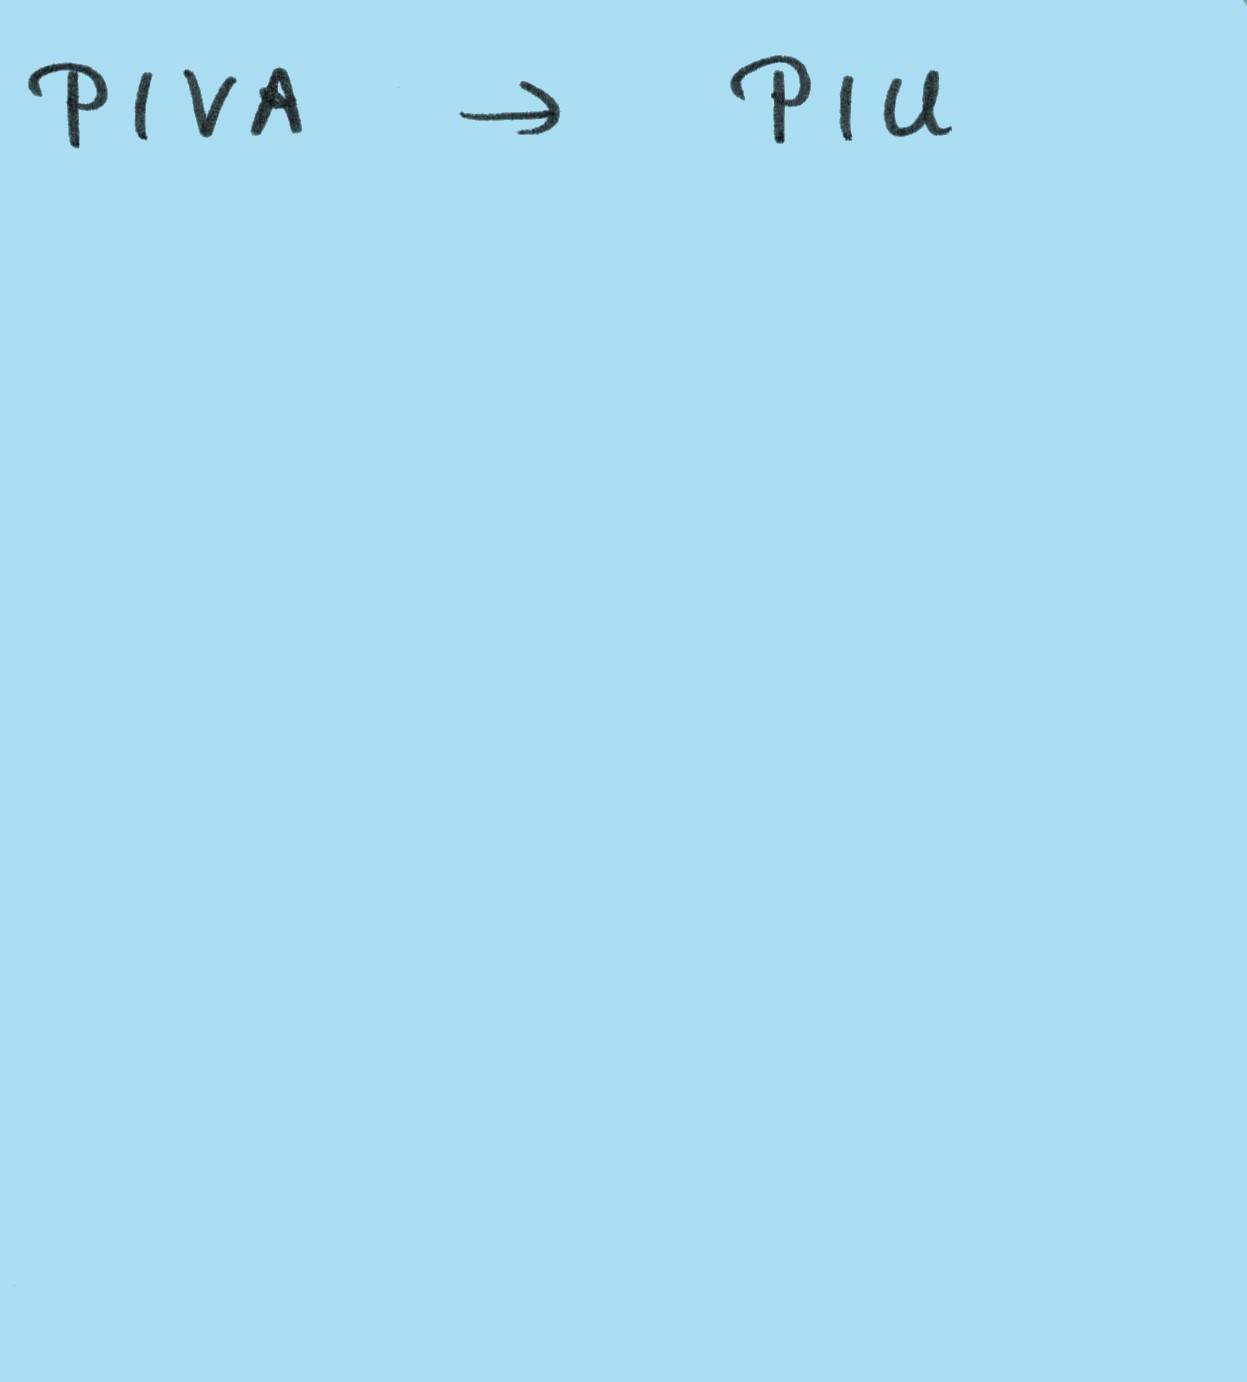 PIVA → PIU